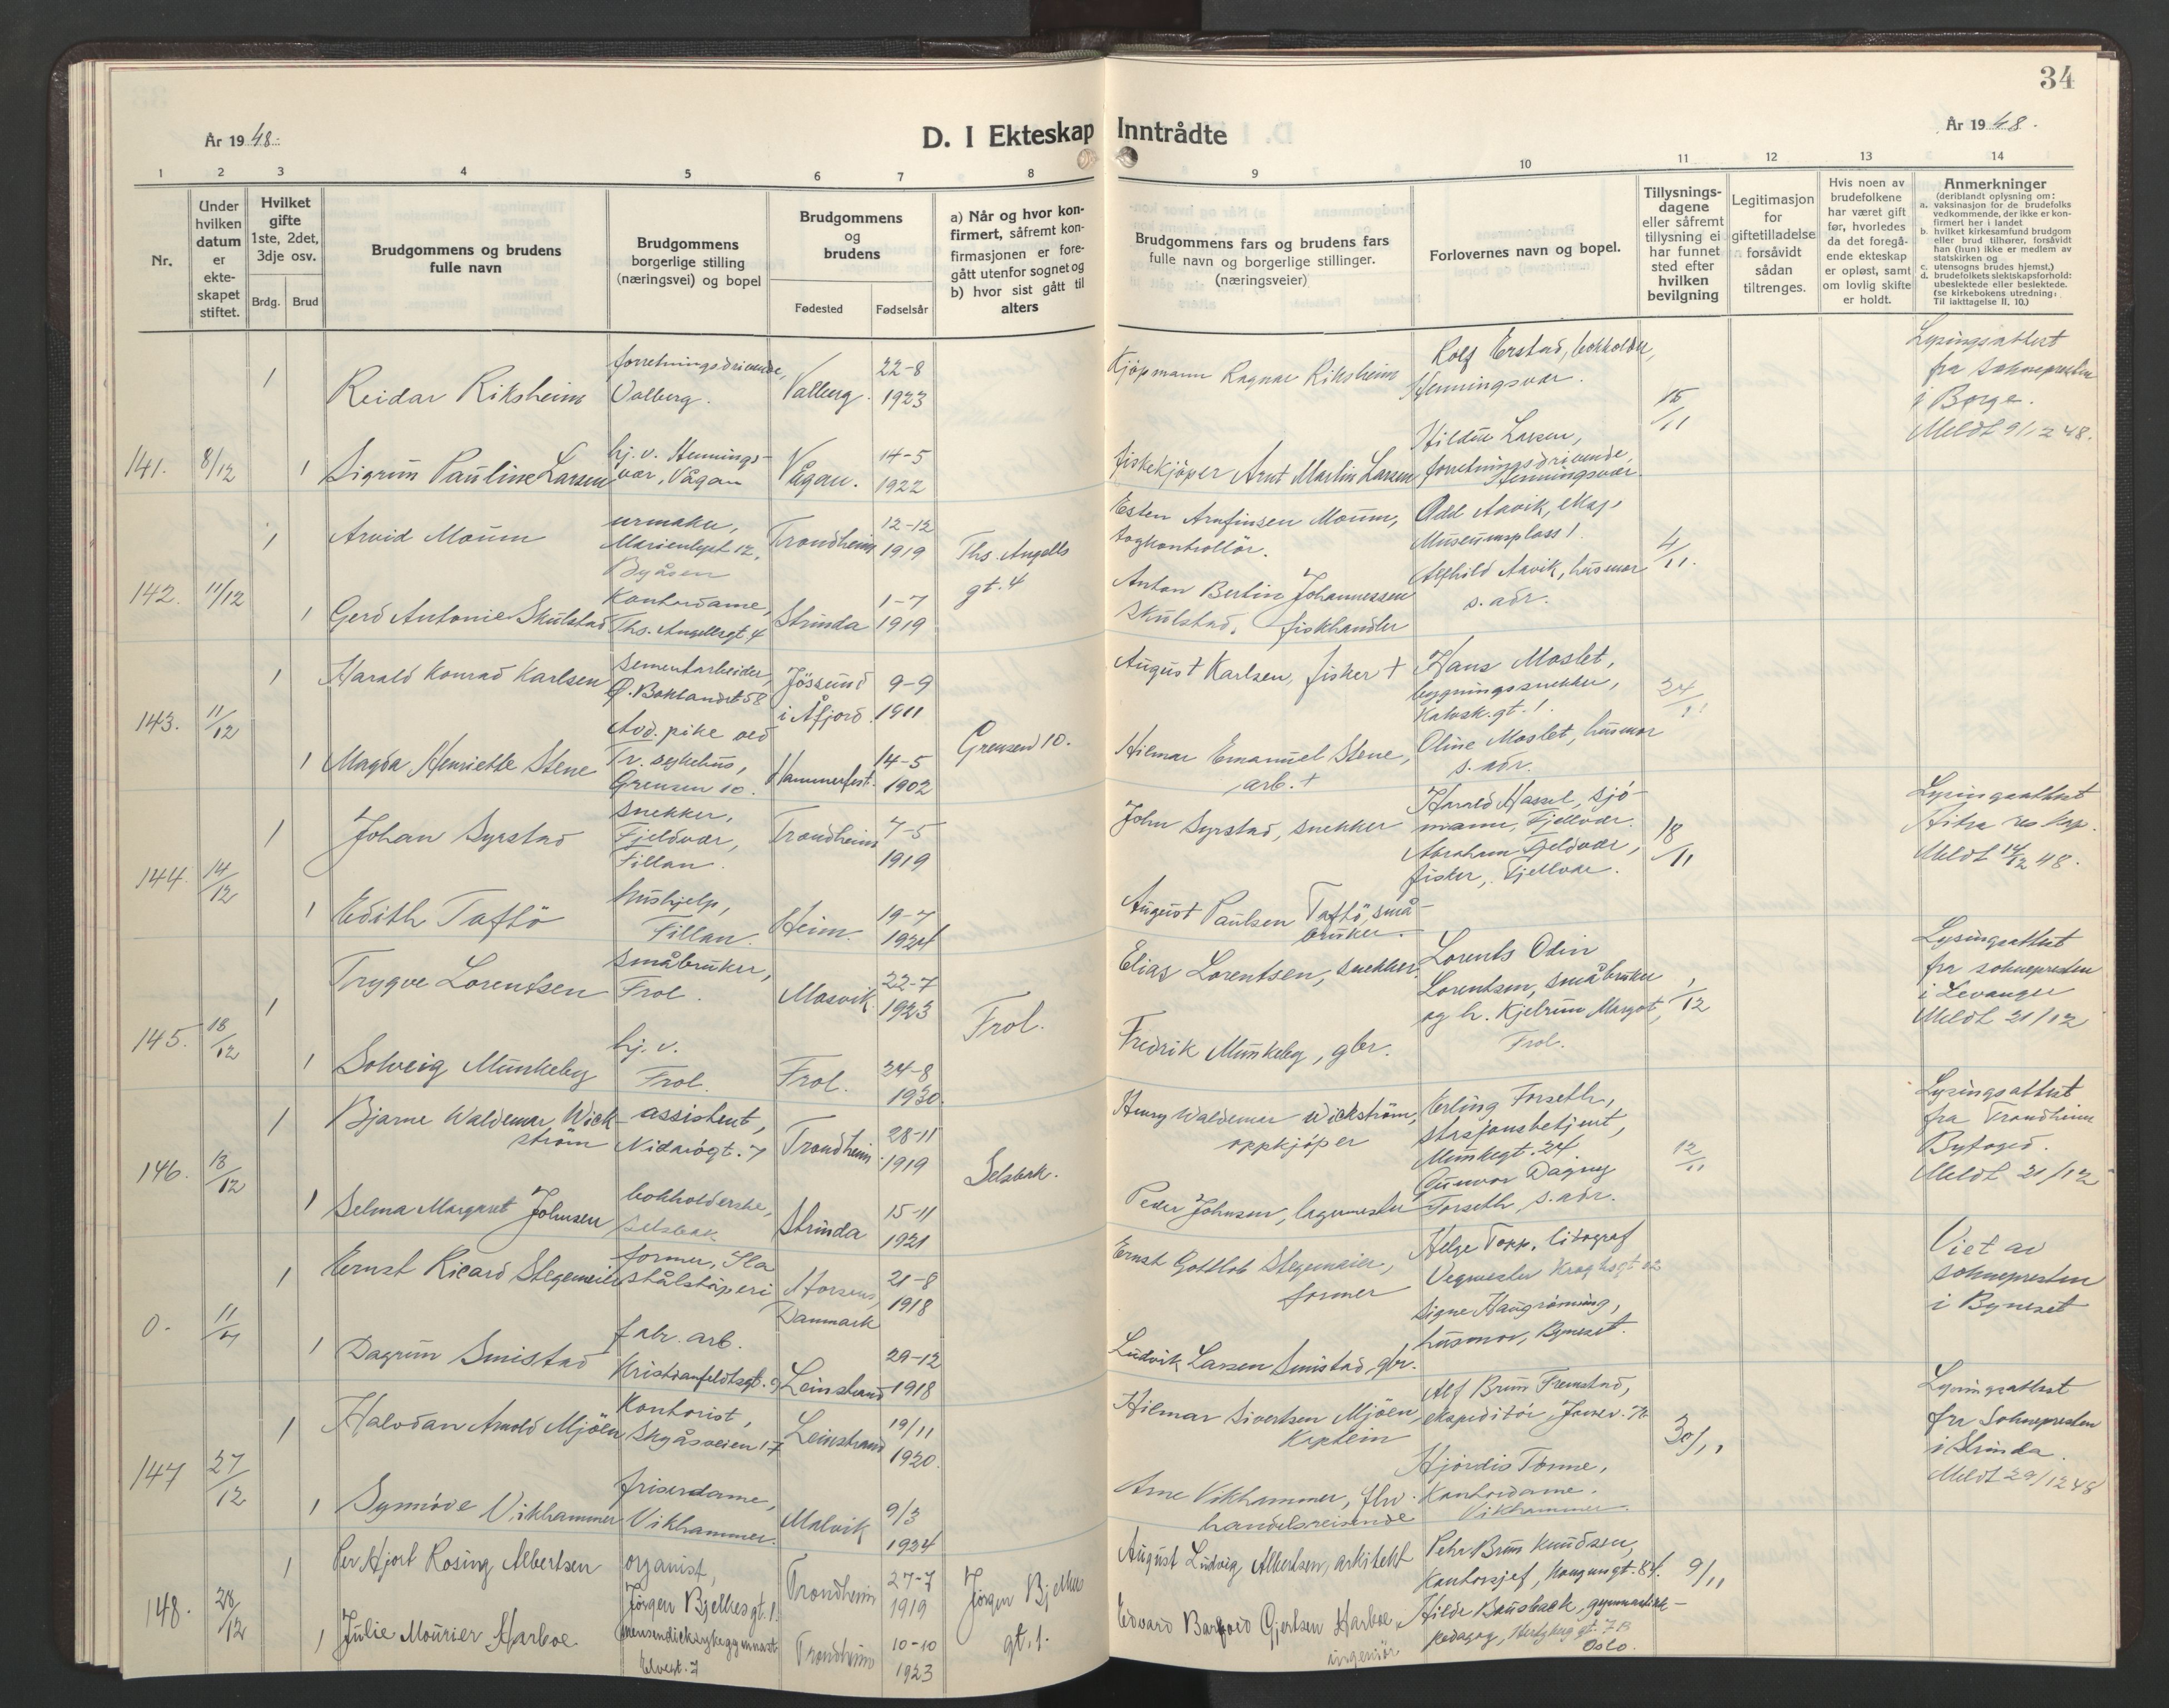 34
År 1948.
D. I Ekteskap Inntrådte
År 1948.
1 2 3 4 5 6 7 8 9 10 11 12 13 14
Nr.
Under hvilken datum er ekteskapet stiftet.
Hvilket gifte 1ste, 2det, 3dje osv.
Brdg. Brud
Brudgommens og brudens fulle navn
Brudgommens borgerlige stilling (næringsvei) og bopel
Brudgommens og brudens
Fødested Fødselsår
a) Når og hvor konfirmert, såfremt konfirmasjonen er foregått utenfor sognet og b) hvor sist gått til alters
Brudgommens fars og brudens fars fulle navn og borgerlige stillinger. (næringsveier)
Forlovernes navn og bopel.
Tillysningsdagene eller såfremt tillysning ei har funnet sted efter hvilken bevilgning
Legitimasjon for giftetilladelse forsåvidt sådan tiltrenges.
Hvis noen av brudefolkene har været gift før, hvorledes da det foregående ekteskap er opløst, samt om lovlig skifte er holdt.
Anmerkninger
(deriblandt oplysning om:
a. vaksinasjon for de brudefolks vedkommende, der ikke er konfirmert her i landet
b. hvilket kirkesamfund brudgom eller brud tilhører, forsåvidt han (hun) ikke er medlem av statskirken og
c. utensogns brudes hjemst.)
d. brudefolkets slektskapsforhold: ubeslektede eller beslektede. (se kirkebokens utredning: Til iakttagelse II. 10.)
1 Reidar Riksheim forretningsdrivende, Valberg. Valberg. 22-8 1923 Kjøpmann Ragnar Riksheim Rolf Erstad, bokholder, Henningsvær. 15/11 Lysingsattest fra Soknepresten i Borge. Meldt 9/12 48.
141. 8/12 1 Sigrun Pauline Larsen hj. v. Henningsvær, Vågan Vågan. 14-5 1922 fiskekjøper Arnt Martin Larsen Larsen, forretningsdrivende, Henningsvær.
1 Arvid Moum urmaker, Marienlyst 12, Byåsen Trondheim 12-12 1919 Ths. Angells gt. 4 Esten Arnfinsen Moum, togkontrollör. Odd Aavik, Museumsplass 1. 4/11.
142. 11/12 1 Gerd Antonie Skulstad Kontordame, Ths. Angellsgt 4 Strinda 1-7 1919 Anton Bertin Johannessen Skulstad, fiskhandler Alfhild Aavik, husmor s. adr.
1 Harald Konrad Karlsen Sementarbeider, Ø. Baklandet 58 Jössund i Åfjord. 9-9 1911 August Karlsen, fisker † Hans Moslet, bygningssnekker, Kalvsk.gt. 1. 24/11
143. 11/12 1 Magda Henriette Stene Avd. pike ved Tr. sykehus, Grensen 10. Hammerfest. 14-5 1902 Grensen 10. Hilmar Emanuel Stene, arb. † Oline Moslet, husmor s. adr.
1 Johan Syrstad snekker, Fjeldvær, Fillan. Trondheim 7-5 1919 John Syrstad, snekker Harald Hassel, sjömann, Fjellvær. 18/11 Lysingsattest Hitra res kap. Meldt 14/12 48.
144. 14/12 1 Edith Taftö hushjelp, Fillan. Heim. 19-7 1924 August Paulsen Taftö, småbruker. Abraham Fjeldvær, fisker, Fjellvær.
1 Trygve Lorentsen Småbruker, Frol. Mosvik 22-7 1923 Frol. Elias Lorentsen, snekker. Lorents Odin Lorentsen, småbruker og h. Kjelrun Margot, Frol. 1/12 Lysingsattest fra soknepresten i Levanger Meldt 21/12
145. 18/12 1 Solveig Munkeby hj. v. Frol. Frol. 24-8 1930. Fredrik Munkeby, gbr.
1 Bjarne Waldemar Wickström assistent, Nidarögt. 7 Trondheim. 28-11 1919 Selsbak. Henry Waldemar Wickström, oppkjöper Erling Forseth, stasjonsbetjent, Munkegt. 24 12/11 Lysingsattest fra Trondheim Byfoged. Meldt 21/12
146. 18/12 1 Selma Margaret Johnsen bokholderske, Selsbak Strinda 15-11 1921 Peder Johnsen, lagermester Gunvor Dagny Forseth, s. adr.
1 Ernst Ricard Stegemeier former, Ila Stålstøperi Horsens, Danmark 21-8 1918 Ernst Gottlob Stegemeier, former Helge Topp, litograf Vegmester Kroghsgt 12 Viet av soknepresten i Byneset
0. 11/7 1 Dagrun Smistad fabr. arb. Kristianfeldtsgt. 9 Leinstrand 29-12 1918 Ludvik Larsen Smistad, gbr. Signe Haugrönning, husmor, Byneset.
1 Halvdan Arnold Mjöen Kontorist, Skyåsveien 17 Leinstrand 19/11 1920. Hilmar Sivertsen Mjöen, Kaptein Alf Brun Fremstad, ekspeditör, 30/11 Lysingsattest fra Soknepresten i Strinda. Meldt 29/12 48
147 27/12 1 Synnöve Vikhammer frisørdame, Vikhammer. Malvik 9/3 1924 Arne Vikhammer, handelsreisende Hjördis Tönne, Kontordame. Vikhammer.
1 Per Hjort Rosing Albertsen organist, Jörgen Bjelkes gt. 1. Trondheim 27-7 1919 Jörgen Bjelkes gt. 1. August Ludvig Albertsen, arkitekt Pehr Brun Knudsen, Kontorsjef, 9/11
148. 28/12 1 Julie Mourier Harboe mensendieck sykegymnast Elvegt. 7 Trondheim 10-10 1923 Edvard Barfoed Gjertsen Harboe, ingeniör Hilde gymnastikkpedagog, Hertzberg gt. 7B Oslo.